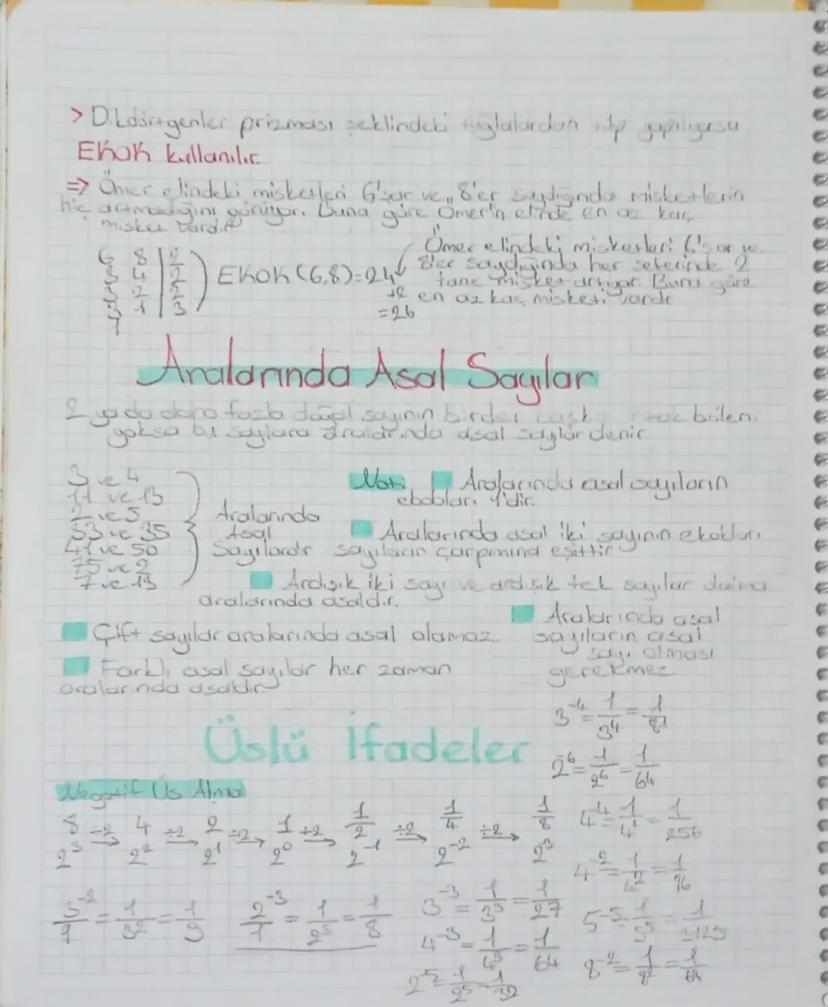 > D.dörtgenler prizması şeklindeki tuğlalardan küp yapılıyorsa
EKOK kullanılır.
=> Ömer elindeki misketleri 6'şar ve 8'er saydığında misketlerin
hiç artmadığını görüyor. Buna göre Ömer'in elinde en az kaç
misket vardır
6 8 | 2
3 4 | 2
3 2 | 2
3 1 | 3
1
EKOK(6,8)=24
+2
=26
Ömer elindeki misketleri 6'şar ve
8'er saydığında her seferinde 2
tane misket artıyor. Buna göre
en az kaç misketi vardır
Aralarında Asal Sayılar
2 ya da daha fazla doğal sayının birden başka ortak böleni
yoksa bu sayılara aralarında asal sayılar denir
3 ve 4
11 ve 13
2 ve 5
33 ve 35
41 ve 50
75 ve 2
7 ve 13
Aralarında
Asal
Sayılardır
Not: Aralarında asal sayıların
ebobları 1'dir.
Aralarında asal iki sayının ekokları
sayıların çarpımına eşittir
Ardışık iki sayı ve ardışık tek sayılar daima
aralarında asaldır.
Çift sayılar aralarında asal olamaz.
Farklı asal sayılar her zaman
aralarında asaldır
Aralarında asal
sayıların asal
sayı olması
gerekmez.
Üslü İfadeler
Negatif Üs Alma
8 ÷2→ 4 ÷2→ 2 ÷2→ 1 ÷2→ 1/2 ÷2→ 1/4 ÷2→ 1/8
2³ 2² 2¹ 2⁰ 2⁻¹ 2⁻² 2⁻³
3⁻²/1 = 1/3² = 1/9
2⁻³/1 = 1/2³ = 1/8
3⁻³ = 1/3³ = 1/27
4⁻³ = 1/4³ = 1/64
2⁻⁵ = 1/2⁵ = 1/32
3⁻⁴ = 1/3⁴ = 1/81
2⁻⁶ = 1/2⁶ = 1/64
4⁻⁴ = 1/4⁴ = 1/256
4⁻² = 1/4² = 1/16
5⁻⁵ = 1/5⁵ = 1/3125
8⁻² = 1/8² = 1/64